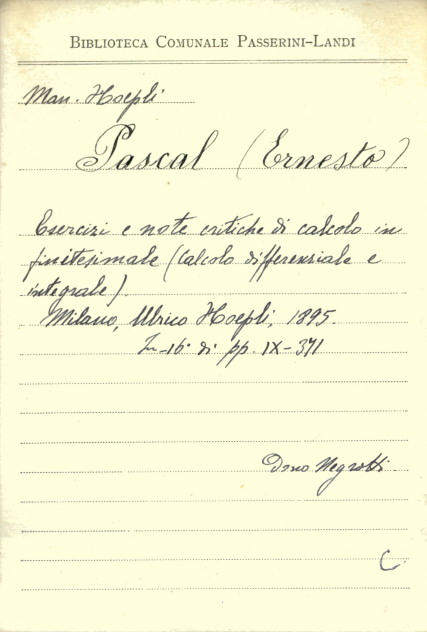 BIBLIOTECA COMUNALE PASSERINI-LANDI
Man. Hoepli
Pascal (Ernesto)
Esercizi e note critiche di calcolo in
finitesimale (Calcolo differenziale e
integrale).
Milano, Ulrico Hoepli, 1895.
In-16° di pp. IX-371
Dono Negrotti.
C.